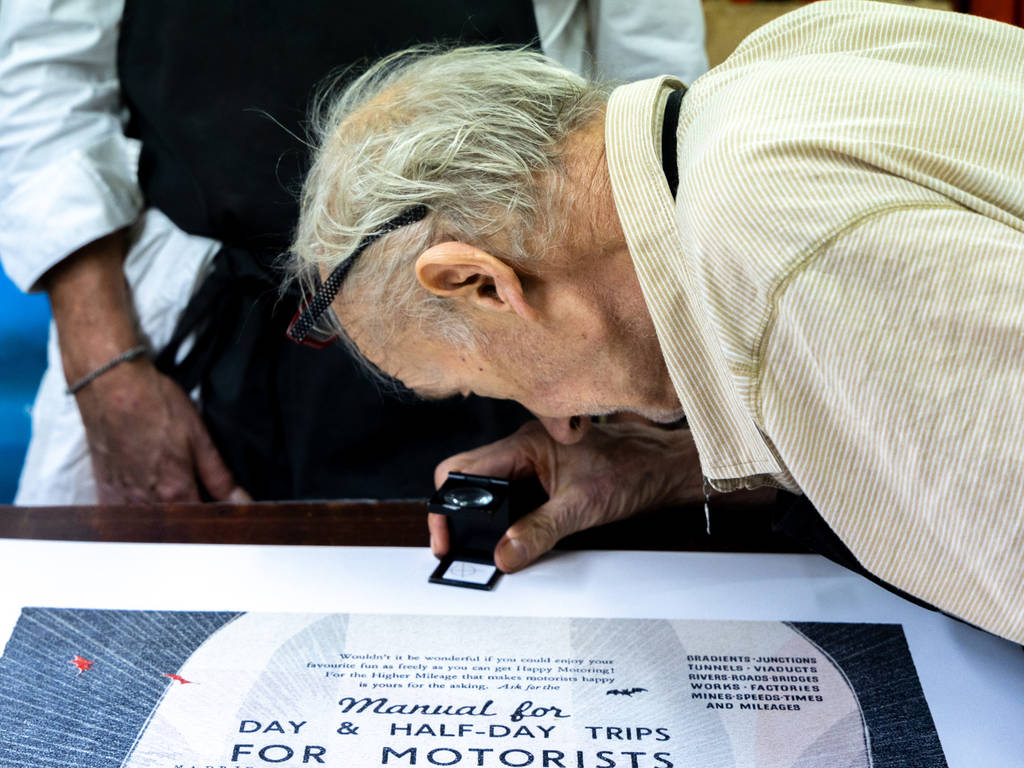 Wouldn't it be wonderful if you could enjoy your
favourite fun as freely as you can get Happy Motoring!
For the Higher Mileage that makes motorists happy
is yours for the asking. Ask for the
Manual for
DAY & HALF-DAY TRIPS
FOR MOTORISTS
GRADIENTS·JUNCTIONS
TUNNELS · VIADUCTS
RIVERS·ROADS·BRIDGES
WORKS · FACTORIES
MINES·SPEEDS·TIMES
AND MILEAGES